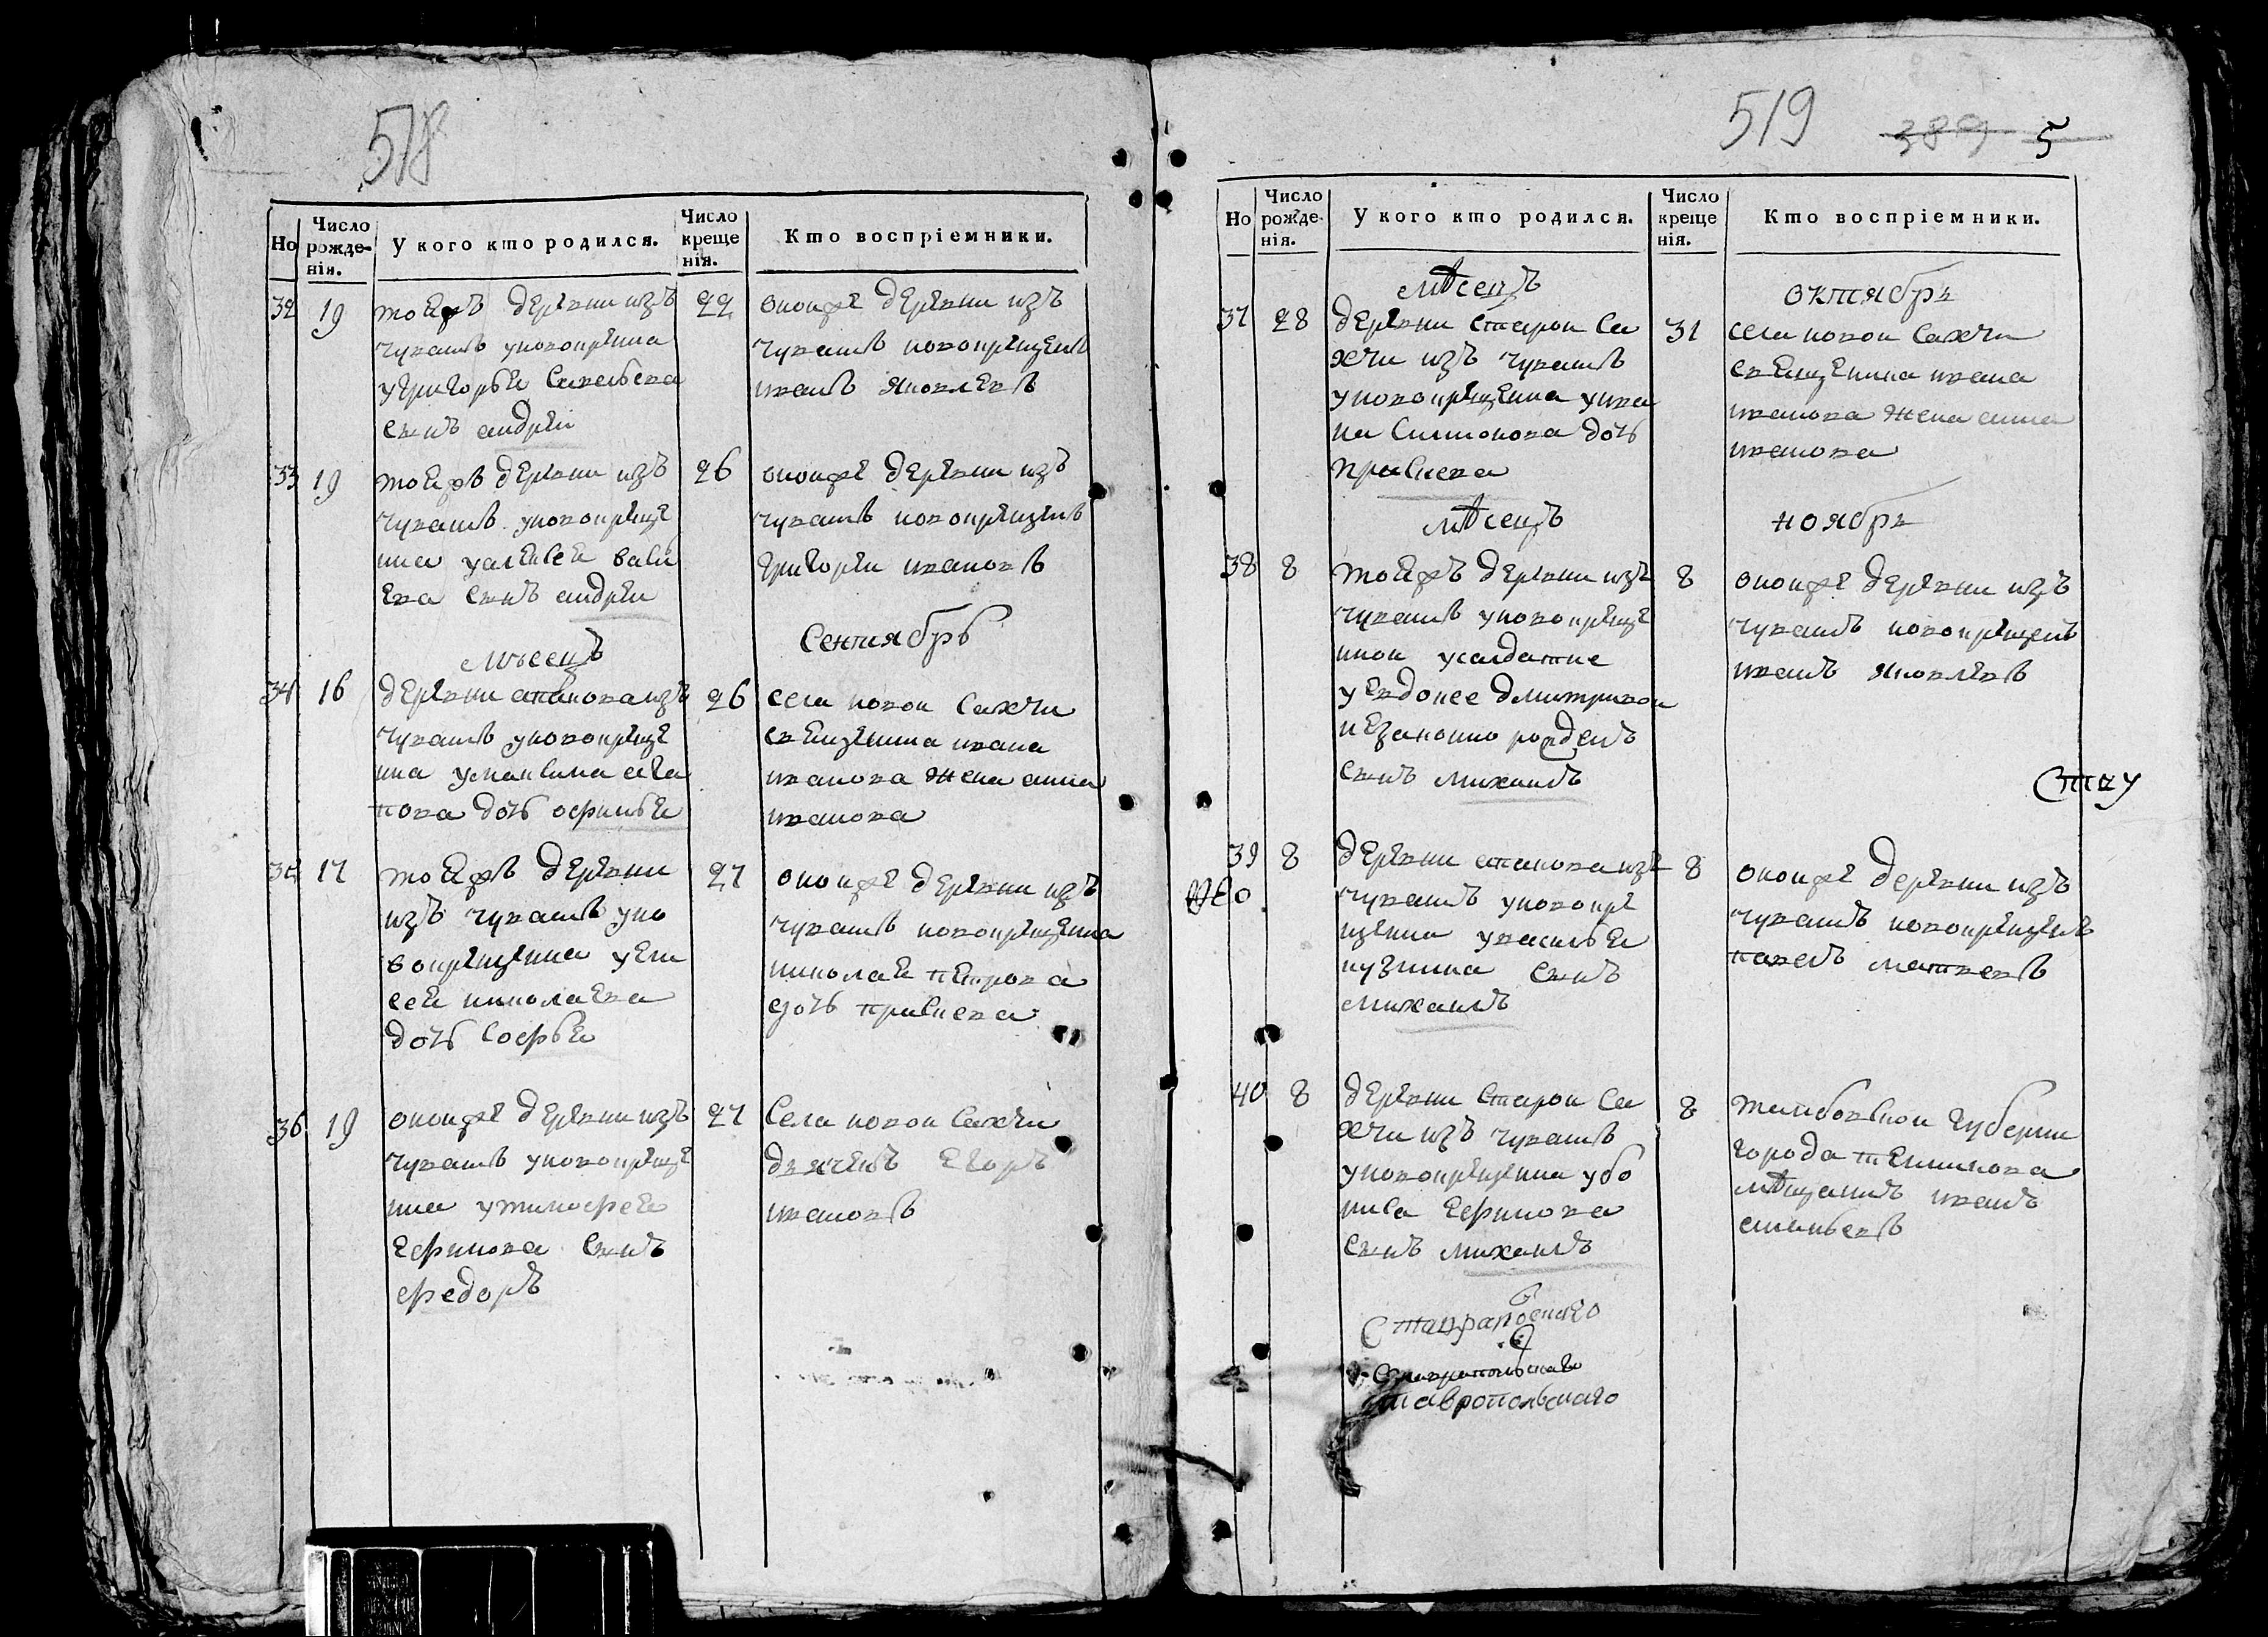 518
Но
Число рожде-нія.
У кого кто родился.
Число креще нія.
Кто воспріемники.
32 19
тоежъ деревни изъ
чувашъ уновокрещена
угригорья савельева
сынъ андреи
22
оноиже деревни изъ
чувашъ новокрещенъ
иванъ яковлевъ
33 19
тоежъ деревни изъ
чувашъ уновокреще
на уалексея васи
ева сынъ андреи
26
оноиже деревни изъ
чувашъ новокрещенъ
григореи ивановъ
мѣсецъ
Сентябрь
34 16
деревни изъ
чувашъ уновокреще
на умаксима ага
пова дочь офимья
26
села новои сахчи
священика ивана
иванова жена анна
иванова
35 17
тоежъ деревни
изъ чувашъ уно
вокрещена уели
сея николаева
дочь софья
27
оноиже деревни изъ
чувашъ новокрещена
николая петрова
дочь прасковя
36 19
оноиже деревни изъ
чувашъ уновокреще
на утимофея
ефимова сынъ
федоръ
27
Села новои сахчи
дьячекъ егоръ
ивановъ
519 389 5
Но
Число рожде-нія.
У кого кто родился.
Число креще нія.
Кто воспріемники.
мѣсецъ
октябрь
37 28
деревни старои са
хчи изъ чувашъ
уновокрещена уива
на симионова дочь
31
села новои сахчи
священика ивана
иванова жена анна
иванова
мѣсецъ
ноябрь
38 8
тоежъ деревни изъ
чувашъ уновокреще
нои усалдатке
уевдокее дмитривои
незаконно рожденъ
сынъ михаилъ
8
оноиже деревни изъ
чувашъ новокрещенъ
иванъ яковлевъ
Ставу
39 8
деревни изъ
чувашъ уновокре
щена увасилья
кузмина сынъ
михаилъ
8
оноиже деревни изъ
чувашъ новокрещенъ
павелъ матвевъ
40 8
деревни старои са
хчи изъ чувашъ
уновокрещена убо
риса ефимова
сынъ михаилъ
8
тамбовскои губерни
города темникова
мѣщанинъ иванъ
Ставрапоскаго
Ставропольскаго
ставропольскаго